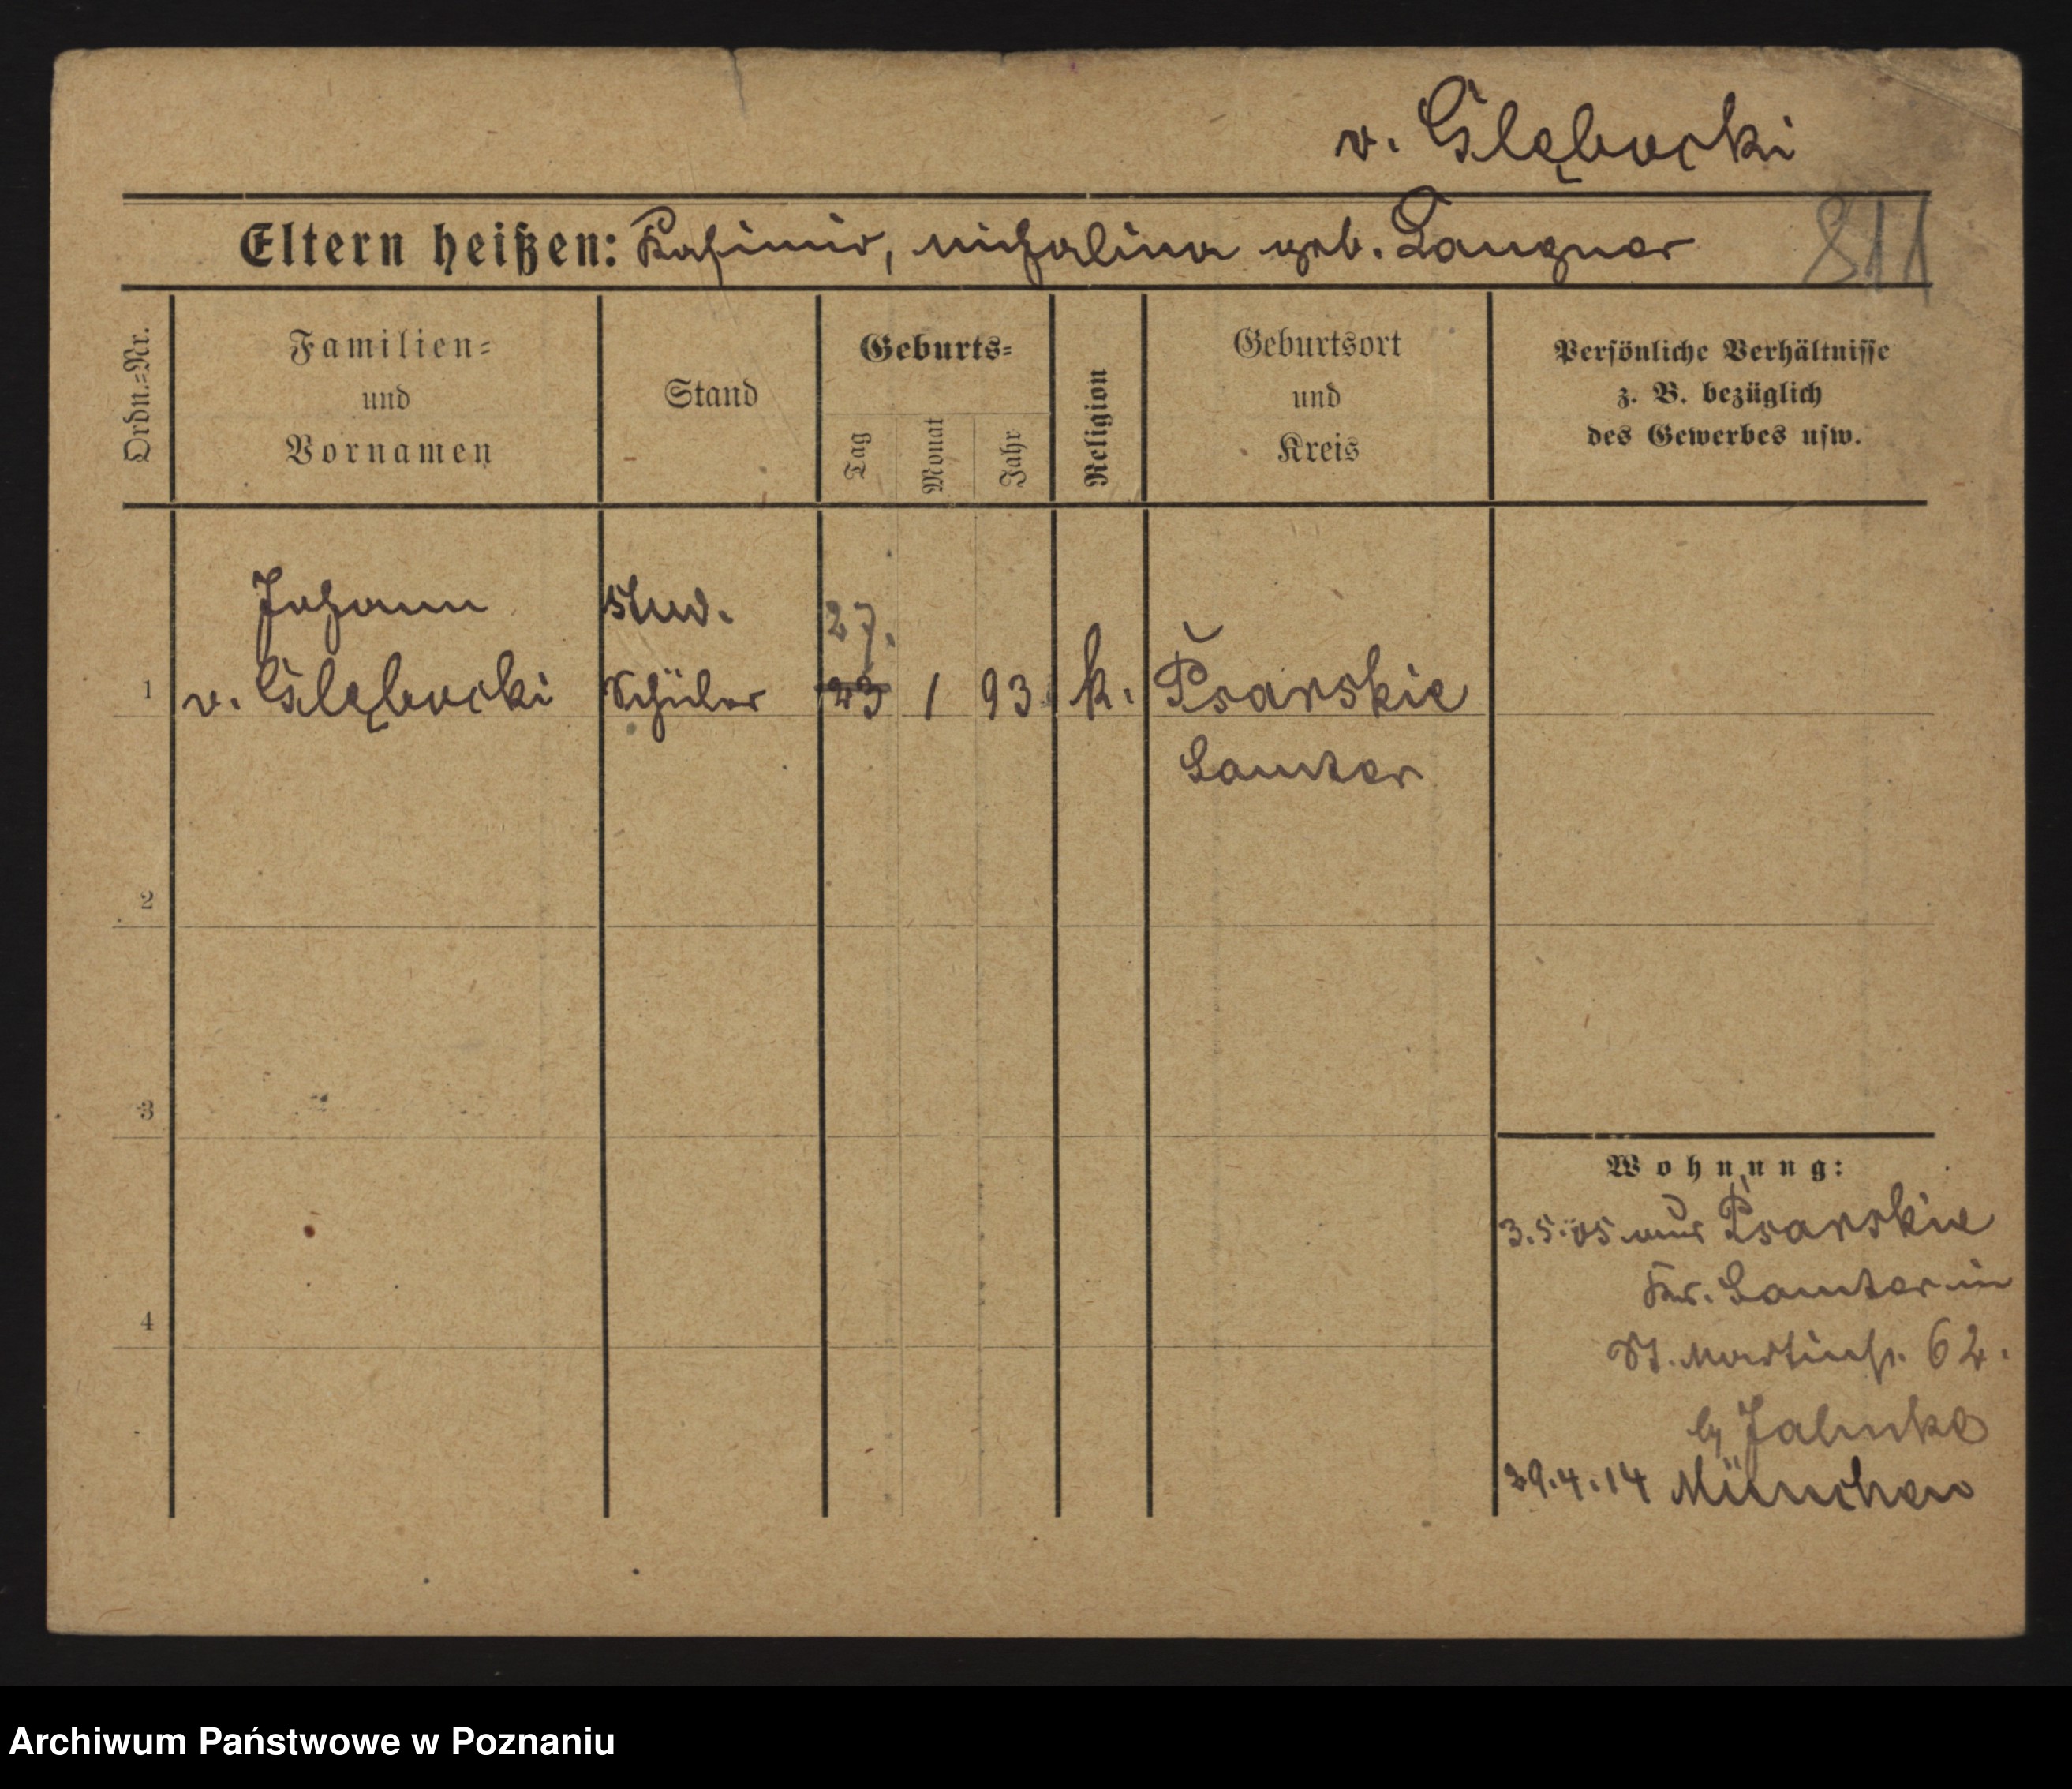 v. Głębocki
Eltern heißen: Kasimir, Michalina geb. Langner
811
Ordn.=Nr.
Familien=
und
Vornamen
Stand
Geburts=
Tag
Monat
Jahr
Religion
Geburtsort
und
Kreis
Persönliche Verhältnisse
z. B. bezüglich
des Gewerbes usw.
Johann stud. 27.
1 v. Głębocki Schüler 23 1 93 k. Psarskie
Samter
2
3
4
Wohnung:
3.5.05 aus Psarskie
Kr. Samter in
St. Martinstr. 62.
b/ Jahnke
29.4.14 München
Archiwum Państwowe w Poznaniu